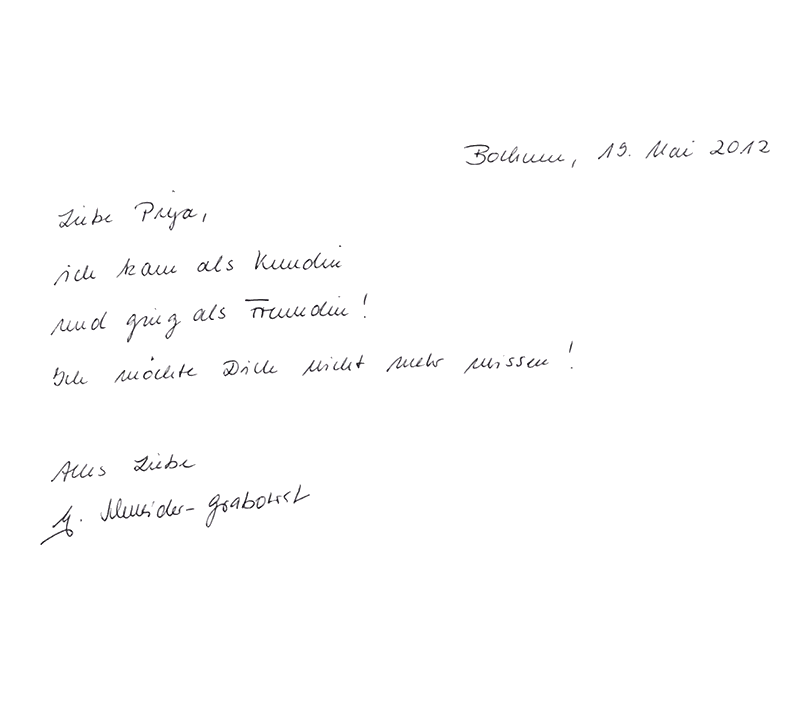 Bochum, 19. Mai 2012
Liebe Priya,
ich kam als Kundin
und ging als Freundin!
Ich möchte Dich nicht mehr missen!
Alles Liebe